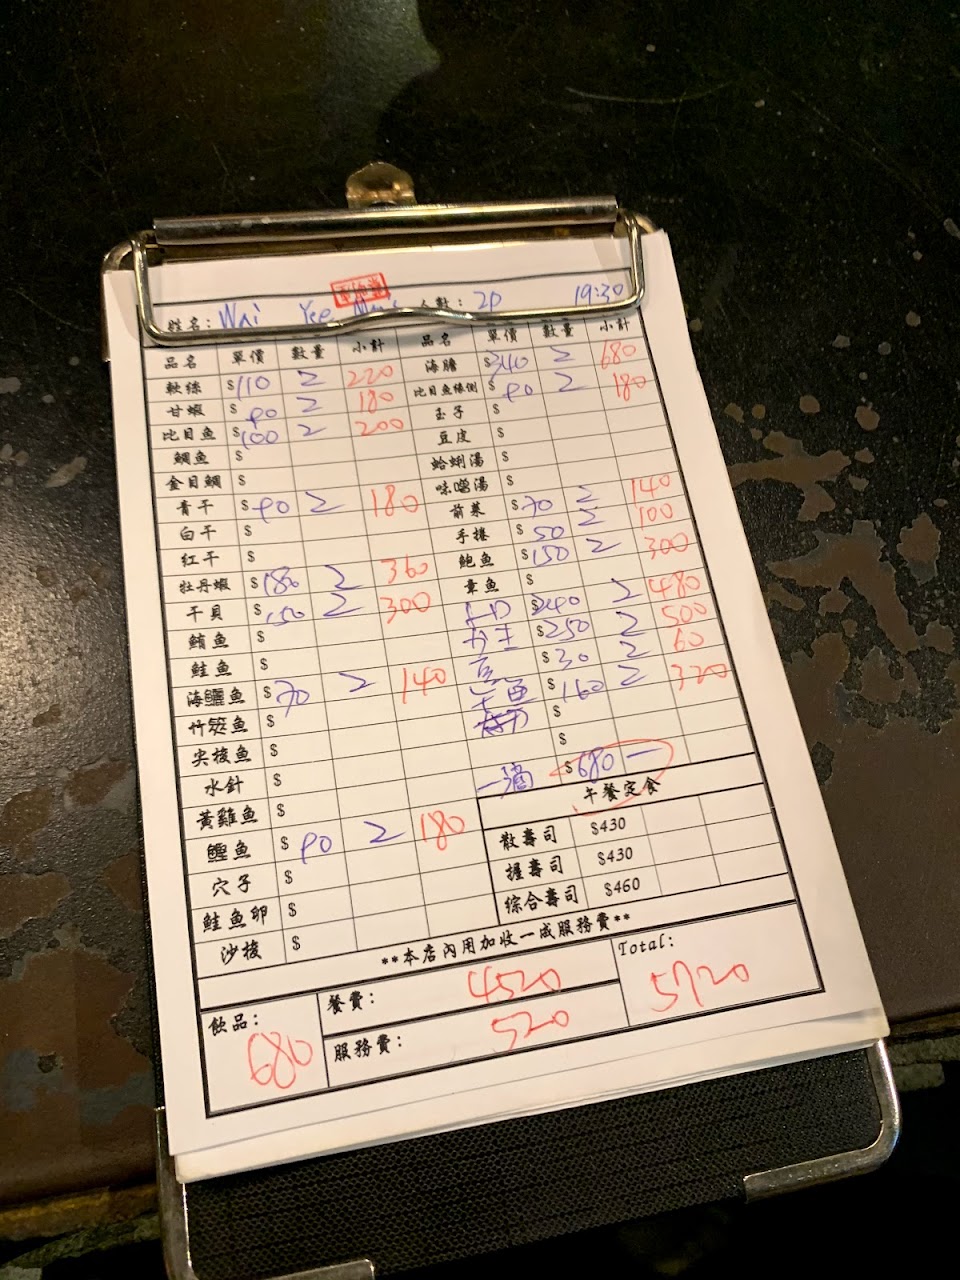 姓名: Wai Yee 人數: 2P 19:30
品名 單價 數量 小計 品名 單價 數量 小計
軟絲 $110 2 220 海膽 $340 2 680
甘蝦 $90 2 180 比目魚緣側 $90 2 180
比目魚 $100 2 200 玉子 $
鯛魚 $ 豆皮 $
金目鯛 $ 蛤蜊湯 $
青干 $90 2 180 味噌湯
白干 $ 前菜 $70 2 140
紅干 $ 手捲 $50 2 100
牡丹蝦 $180 2 360 鮑魚 $150 2 300
干貝 $150 2 300 章魚 $
鮪魚 $ $240 2 480
鮭魚 $ $250 2 500
海鱺魚 $70 2 140 $30 2 60
竹筴魚 $ $160 2 320
尖梭魚 $ $
水針 $ $
黃雞魚 $ 一滴 $680 一
鰹魚 $90 2 180 午餐定食
穴子 $ 散壽司 $430
鮭魚卵 $ 握壽司 $430
沙梭 $ 綜合壽司 $460
**本店內用加收一成服務費**
飲品: 680
餐費: 4520
服務費: 520
Total: 5720